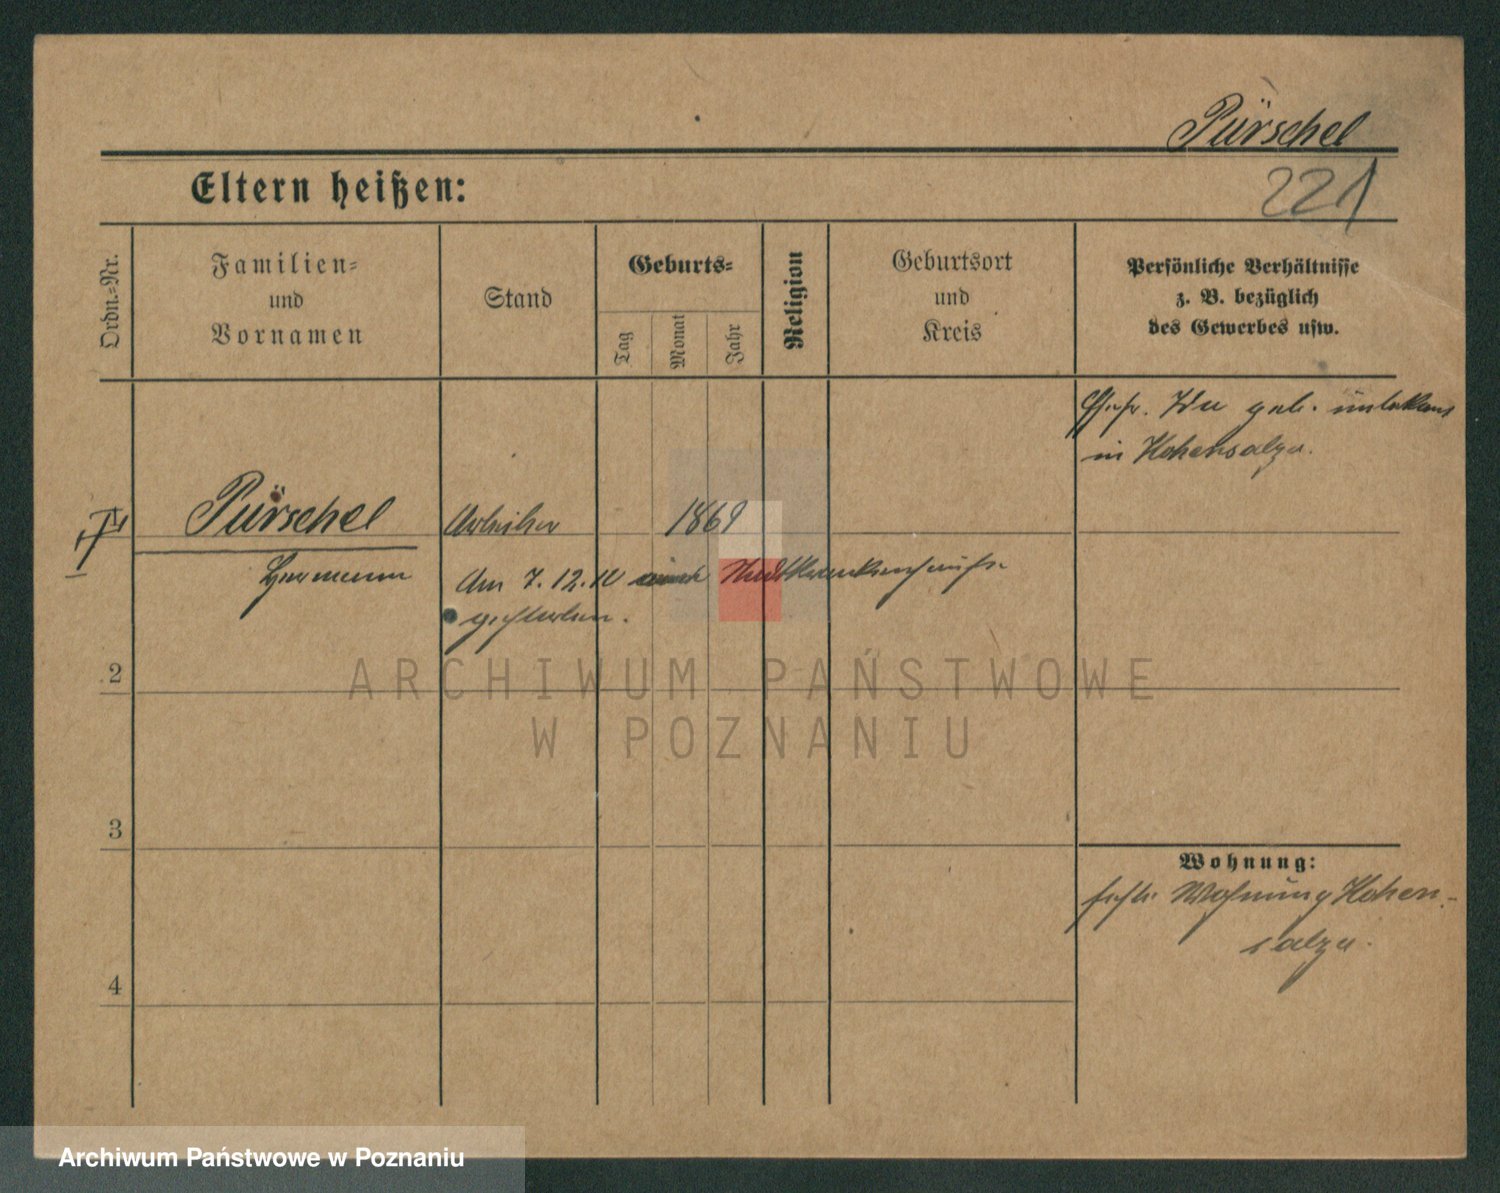 Pürschel
Eltern heißen:
221
Ordn.=Nr.
Familien=
und
Vornamen
Stand
Geburts=
Tag
Monat
Jahr
Religion
Geburtsort
und
Kreis
Persönliche Verhältnisse
z. B. bezüglich
des Gewerbes usw.
Ehefr. geb. unbekannt
in Hohensalza.
Pürschel
Arbeiter
1869
Hermann
Am 7.12.12 Stadtkrankenhause
gestorben.
2
ARCHIWUM PAŃSTWOWE
W POZNANIU
3
Wohnung:
Wohnung Hohen-
salza.
4
Archiwum Państwowe w Poznaniu